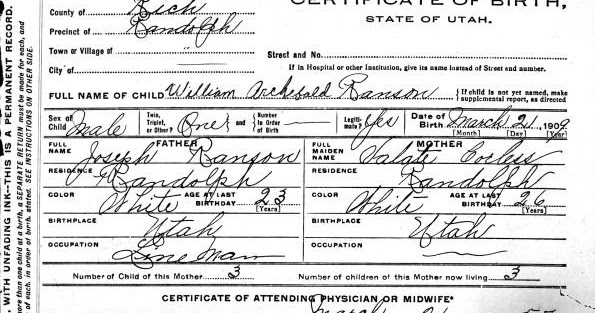 CERTIFICATE OF BIRTH,
STATE OF UTAH.
County of Rich
Precinct of Randolph
Town or Village of "
Street and No.
City of
If in Hospital or other Institution, give its name instead of Street and number.
FULL NAME OF CHILD William Archebald Ranson { If child is not yet named, make supplemental report, as directed
Sex of Child Male Twin, Triplet, or Other? One and Number in Order of Birth — Legitimate? Yes Date of Birth March 21, 1909
[Month] [Day] [Year]
FATHER MOTHER
FULL NAME Joseph Ranson FULL MAIDEN NAME Corless
RESIDENCE Randolph RESIDENCE Randolph
COLOR White AGE AT LAST BIRTHDAY 23 [Years] COLOR White AGE AT LAST BIRTHDAY 26 [Years]
BIRTHPLACE Utah BIRTHPLACE Utah
OCCUPATION Line Man OCCUPATION
Number of Child of this Mother 3 Number of children of this Mother now living 3
CERTIFICATE OF ATTENDING PHYSICIAN OR MIDWIFE*
WITH UNFADING INK--THIS IS A PERMANENT RECORD.
more than one child at a birth, a SEPARATE RETURN must be made for each, and
of each, in order of birth, stated. SEE INSTRUCTIONS ON OTHER SIDE.